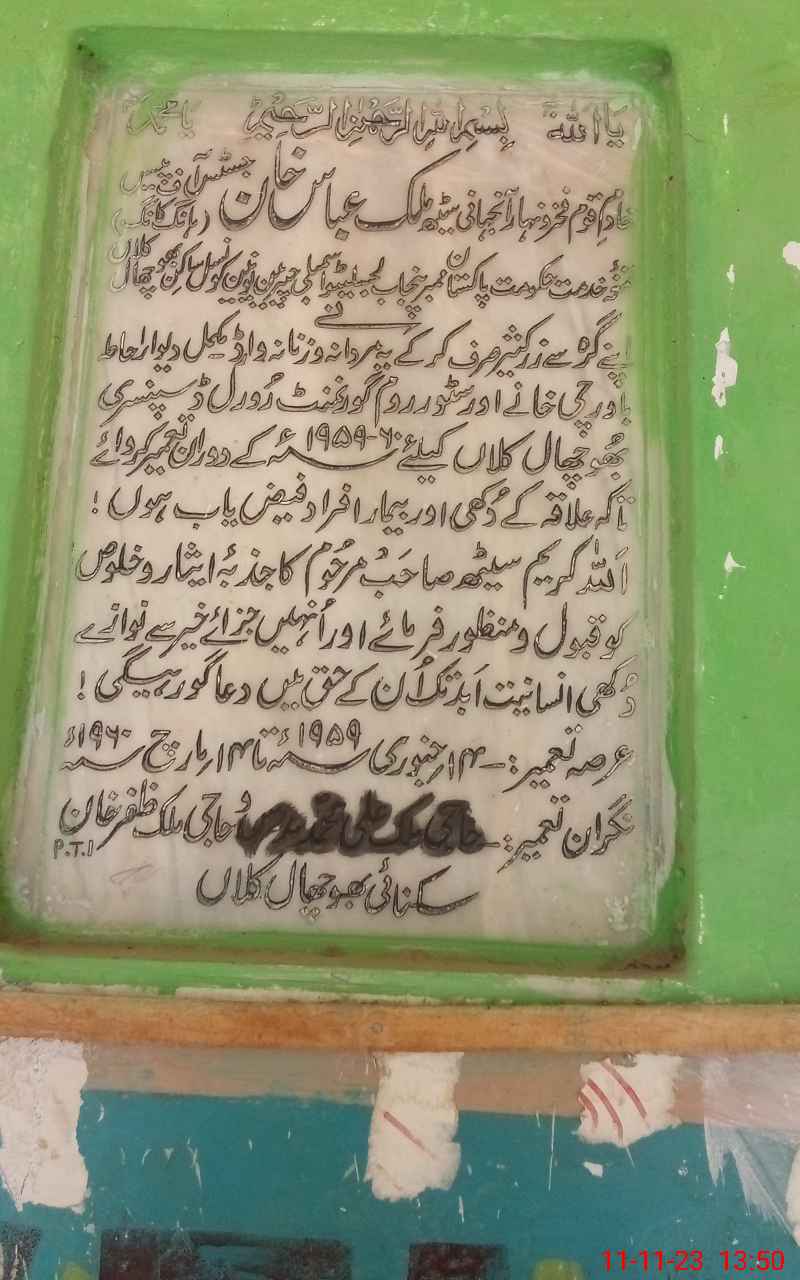 یا اللہ بسم اللہ الرحمن الرحیم یا محمد
خادم قوم فخر ونہار آنجہانی سیٹھ ملک عباس خان جسٹس آف پیس (ہانگ کانگ)
تمغہ خدمت حکومت پاکستان ممبر پنجاب لیجسلیٹو اسمبلی چیئرمین یونین کونسل ساکن بھوچھال کلاں
نے
اپنے گرہ سے زر کثیر صرف کر کے یہ مردانہ و زنانہ وارڈ مکمل دیوار احاطہ
باورچی خانے اور سٹور روم گورنمنٹ رُورل ڈسپنسری
بھُوچھال کلاں کیلئے ۶۰-۱۹۵۹ء کے دوران تعمیر کروائے
تاکہ علاقہ کے دُکھی اور بیمار افراد فیض یاب ہوں !
اللہ کریم سیٹھ صاحب مرحُوم کا جذبۂ ایثار و خلوص
کو قبول و منظور فرمائے اور اُنہیں جزائے خیر سے نوازے
دُکھی انسانیت اَبد تک اُن کے حق میں دعا گو رہیگی !
عرصہ تعمیر :- ۱۴ جنوری ۱۹۵۹ء تا ۱۴ مارچ ۱۹۶۰ء
نگران تعمیر :- حاجی ملک محمد و حاجی ملک ظفر خان
P.T.I
سکنائی بھوچھال کلاں
11-11-23 13:50